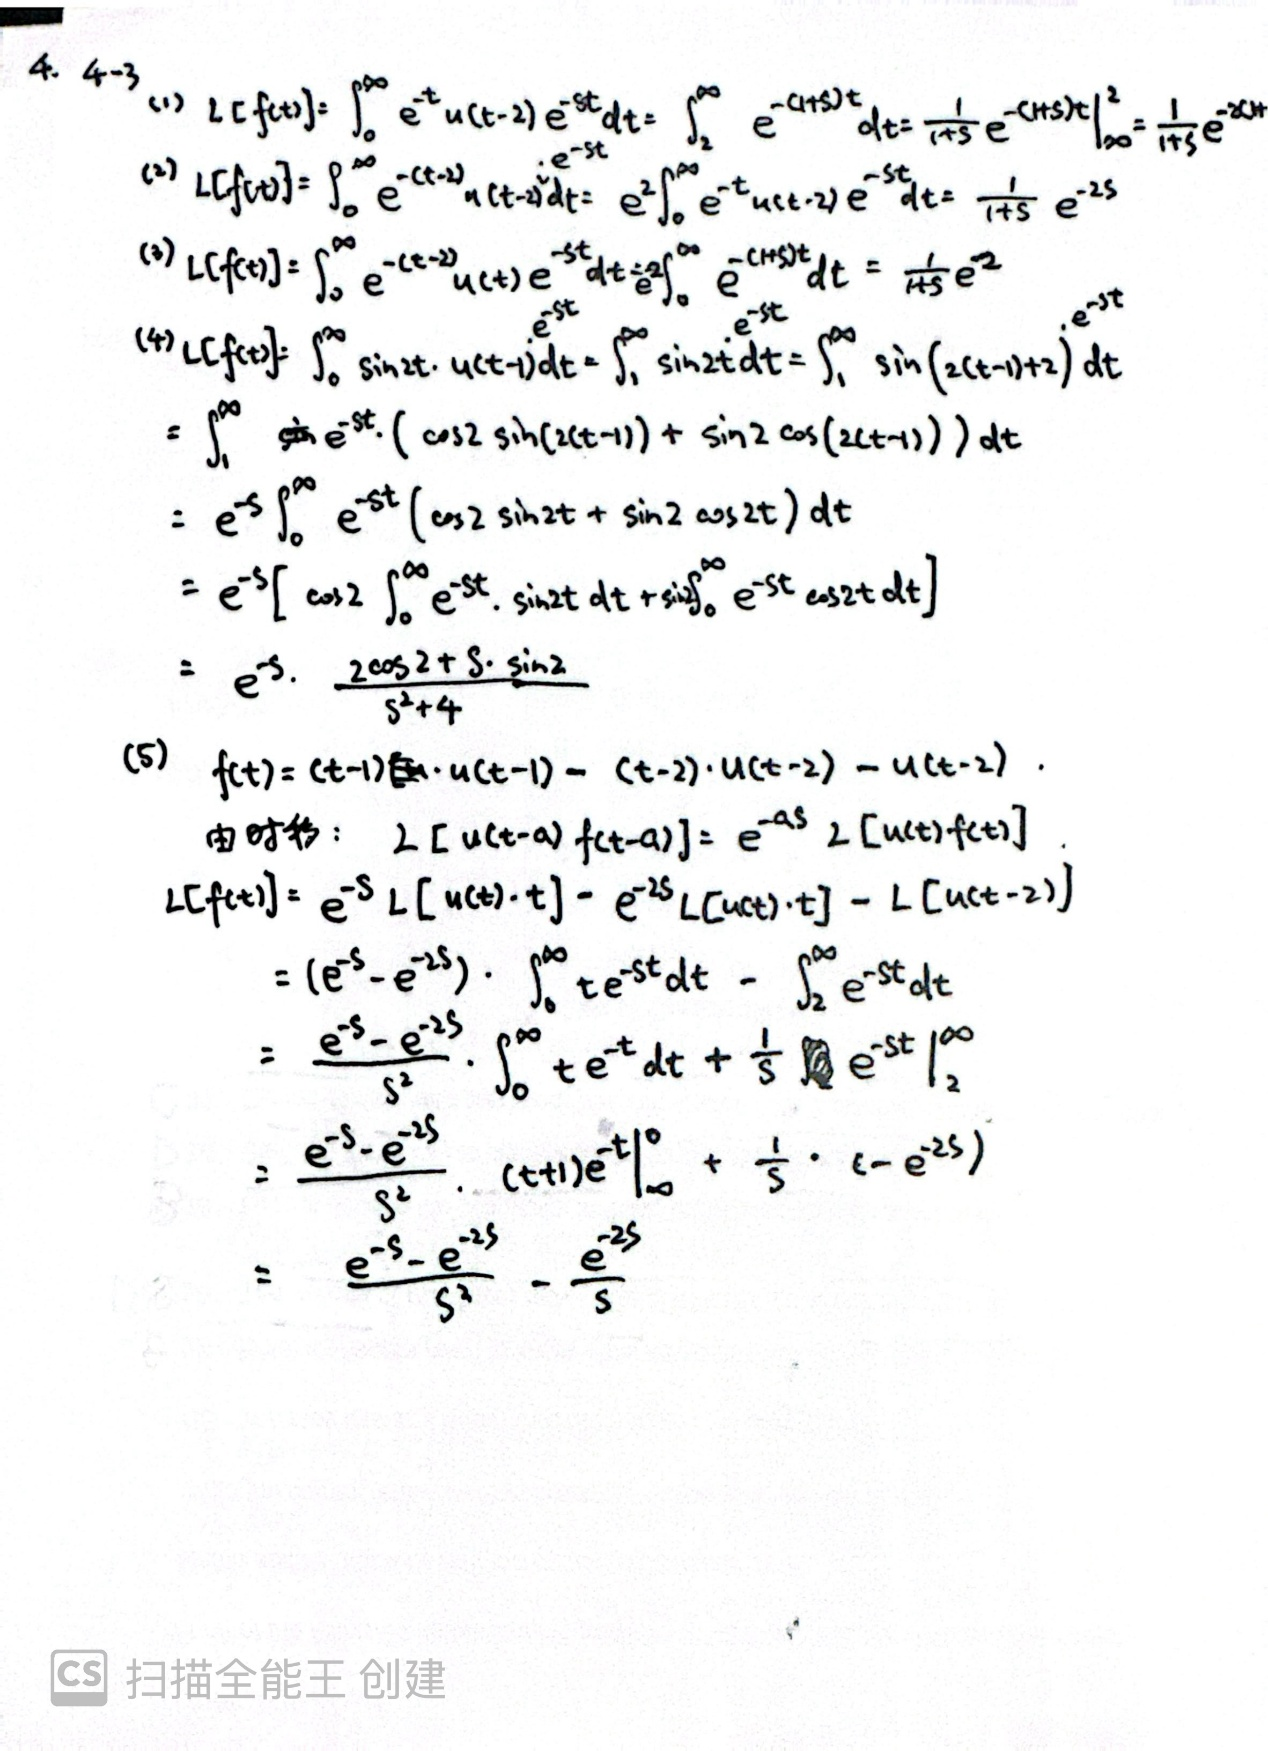 4. 4-3
(1) L[f(t)]= ∫₀^∞ e^{-t} u(t-2) e^{-st} dt = ∫₂^∞ e^{-(1+s)t} dt = 1/(1+s) e^{-(1+s)t} |_∞^2 = 1/(1+s) e^{-2(1+
(2) L[f(t)]= ∫₀^∞ e^{-(t-2)} u(t-2)·e^{-st} dt = e² ∫₀^∞ e^{-t} u(t-2) e^{-st} dt = 1/(1+s) e^{-2s}
(3) L[f(t)] = ∫₀^∞ e^{-(t-2)} u(t) e^{-st} dt = e² ∫₀^∞ e^{-(1+s)t} dt = 1/(1+s) e²
(4) L[f(t)]= ∫₀^∞ sin2t·u(t-1) e^{-st} dt = ∫₁^∞ sin2t·e^{-st} dt = ∫₁^∞ sin(2(t-1)+2)·e^{-st} dt
= ∫₁^∞ e^{-st}·(cos2 sin(2(t-1)) + sin2 cos(2(t-1))) dt
= e^{-s} ∫₀^∞ e^{-st} (cos2 sin2t + sin2 cos2t) dt
= e^{-s} [cos2 ∫₀^∞ e^{-st}·sin2t dt + sin2 ∫₀^∞ e^{-st} cos2t dt]
= e^{-s}·(2cos2+s·sin2)/(s²+4)
(5) f(t) = (t-1)·u(t-1) - (t-2)·u(t-2) - u(t-2).
由时移: L[u(t-a) f(t-a)] = e^{-as} L[u(t)f(t)].
L[f(t)] = e^{-s} L[u(t)·t] - e^{-2s} L[u(t)·t] - L[u(t-2)]
= (e^{-s}-e^{-2s})·∫₀^∞ te^{-st} dt - ∫₂^∞ e^{-st} dt
= (e^{-s}-e^{-2s})/s²·∫₀^∞ te^{-t} dt + 1/s e^{-st} |_2^∞
= (e^{-s}-e^{-2s})/s²·(t+1)e^{-t} |_∞^0 + 1/s·(-e^{-2s})
= (e^{-s}-e^{-2s})/s² - e^{-2s}/s
CS 扫描全能王 创建